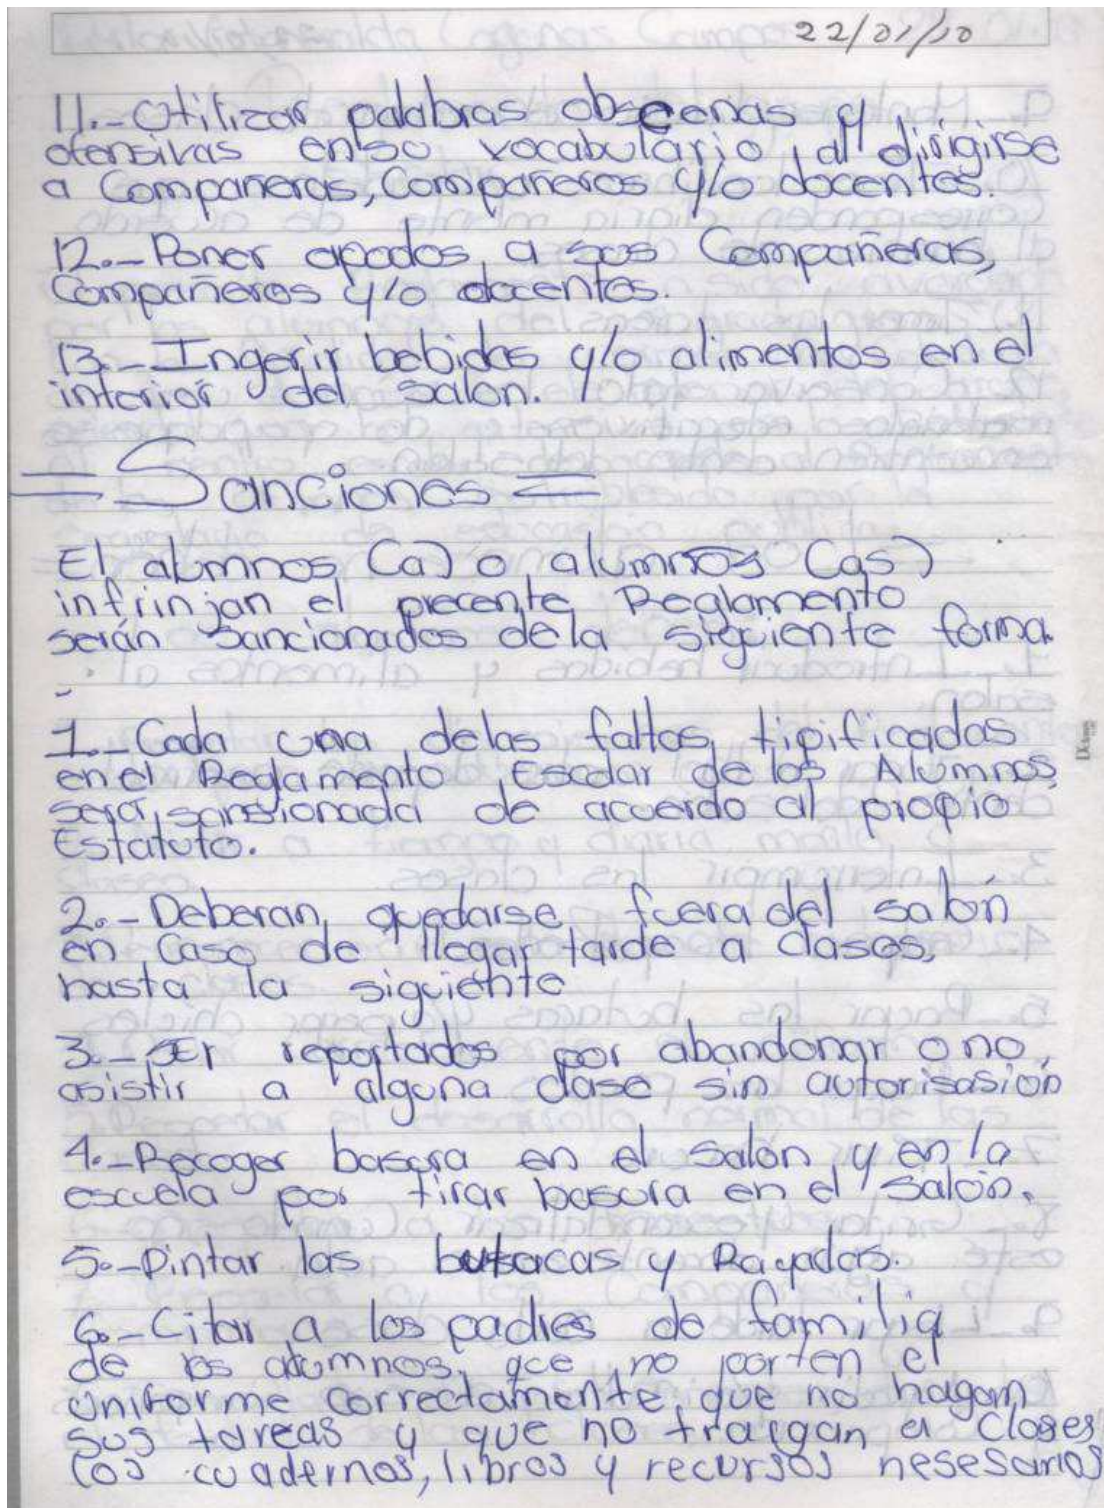 22/01/10
11.-Utilizar palabras obscenas y
ofensivas en su vocabulario, al dirigirse
a Compañeras, Compañeros y/o docentes.
12.-Poner apodos, a sus Compañeras,
Compañeros y/o docentes.
13.-Ingerir bebidas y/o alimentos en el
interior del salon.
=Sanciones=
El alumnos (a) o alumnos (as)
infrinjan el precente Reglamento
serán sancionados dela siguiente forma
1.-Cada una delas faltas, tipificadas
en el Reglamento Escolar de los Alumnos,
será, sansionada de acuerdo al propio
Estatuto.
2.-Deberan quedarse fuera del salón
en Caso de llegar tarde a clases,
hasta la siguiente
3.-ser reportados por abandonar o no,
asistir a alguna clase sin autorisasión
4.-Recoger basura en el salón, y en la
escuela por tirar basura en el salón.
5.-Pintar las butacas y Rayadas.
6.-Citar a los padres de familia
de los alumnos, que no porten el
uniforme correctamente, que no hagan
sus tareas y que no traigan a Clases
los cuadernos, libros y recursos nesesarios